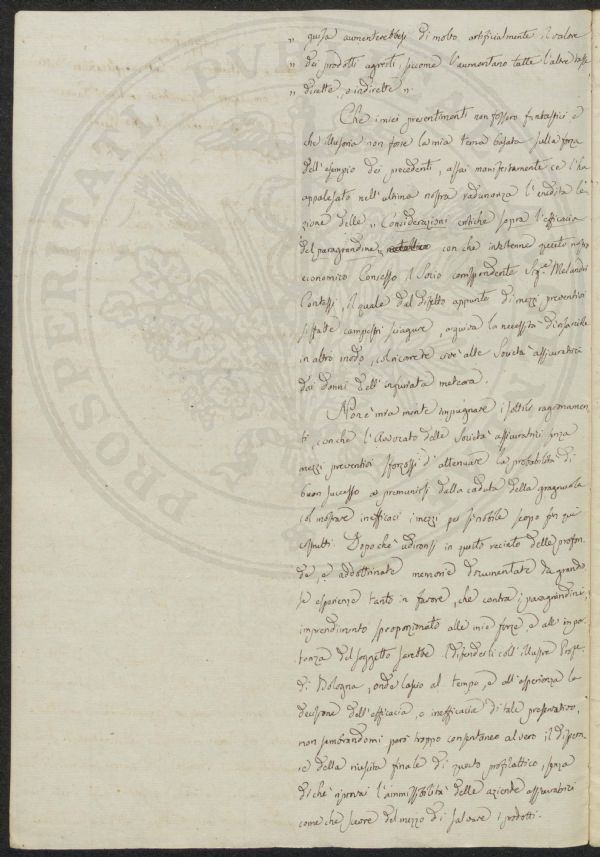 " guisa aumenterebbesi di molto artificialmente il valore
" dei prodotti agresti, siccome l'aumentano tutte l'altre tasse
" dirette, e indirette "
Che i miei presentimenti non fossero fantastici e
che illusoria non fosse la mia tema basata sulla forza
dell'esempio dei precedenti, assai manifestamente ce l'ha
appalesato nell'ultima nostra radunanza l'erudita le-
zione delle " Considerazioni critiche sopra l'efficacia
del paragrandine " con che intertenne questo nostro
economico Consesso il Socio corrispondente Sig.e Melandri
Contessi, il quale dal difetto appunto di mezzi preventivi
siffatte campestri sciagure, arguiva la necessità d'
in altro modo, col ricorrere cioè alle Società assicuratrici
dai danni dell'infuriata meteora.
Non è mia mente impugnare i sottili ragionamen
ti, con che l'Avvocato delle Società assicuratrici senza
mezzi preventivi sforzossi d'attenuare la probabilità di
buon successo a premunirsi dalla caduta della gragnuola
col mostrare inefficaci i mezzi per sì nobile scopo fin quì
. Dopo che udironsi in questo recinto delle profon
de, e addottrinate memorie documentate da grandio
se esperienze tanto in favore, che contra i paragrandini,
imprendimento sproporzionato alle mie forze, e all'impor
tanza del soggetto sarebbe difenderli coll'illustre Profes.e
di Bologna, onde lascio al tempo, e all'esperienza la
decisione dell'efficacia, o inefficacia di tale preservativo,
non sembrandomi però troppo consentaneo al vero il dispera
re della riuscita finale di questo profilattico, senza
di che riprovai l'ammissibilità delle aziende assicuratrici
come che scevre del mezzo di salvare i prodotti.
PROSPERITATI PUBLICAE